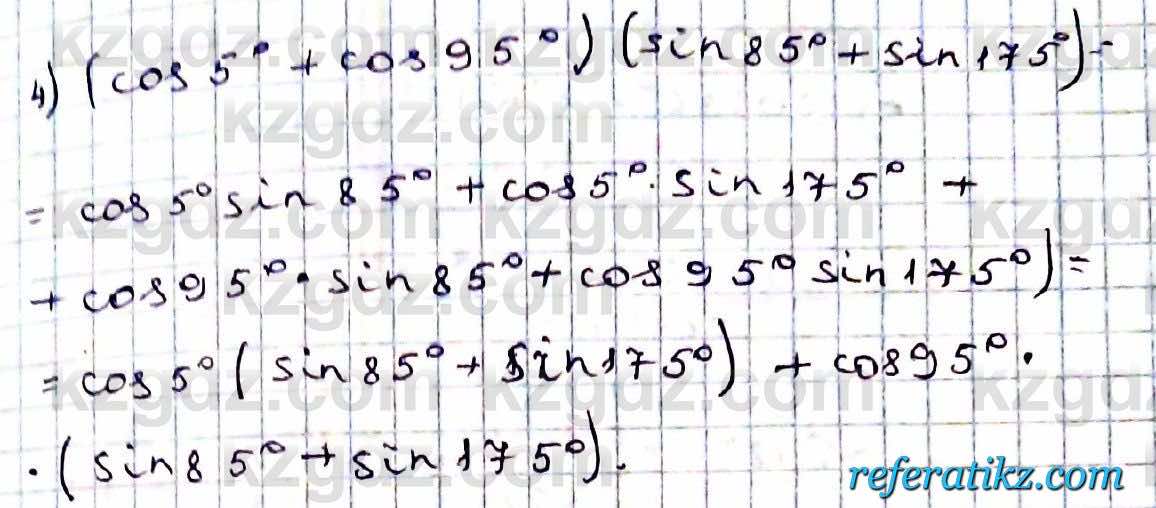 4) (cos 5° + cos 95°) (sin 85° + sin 175°) =
= cos 5° sin 85° + cos 5° · sin 175° +
+ cos 95° · sin 85° + cos 95° sin 175°) =
= cos 5° ( sin 85° + sin 175°) + cos 95° ·
· ( sin 85° + sin 175°).
kzgdz.com
referatikz.com